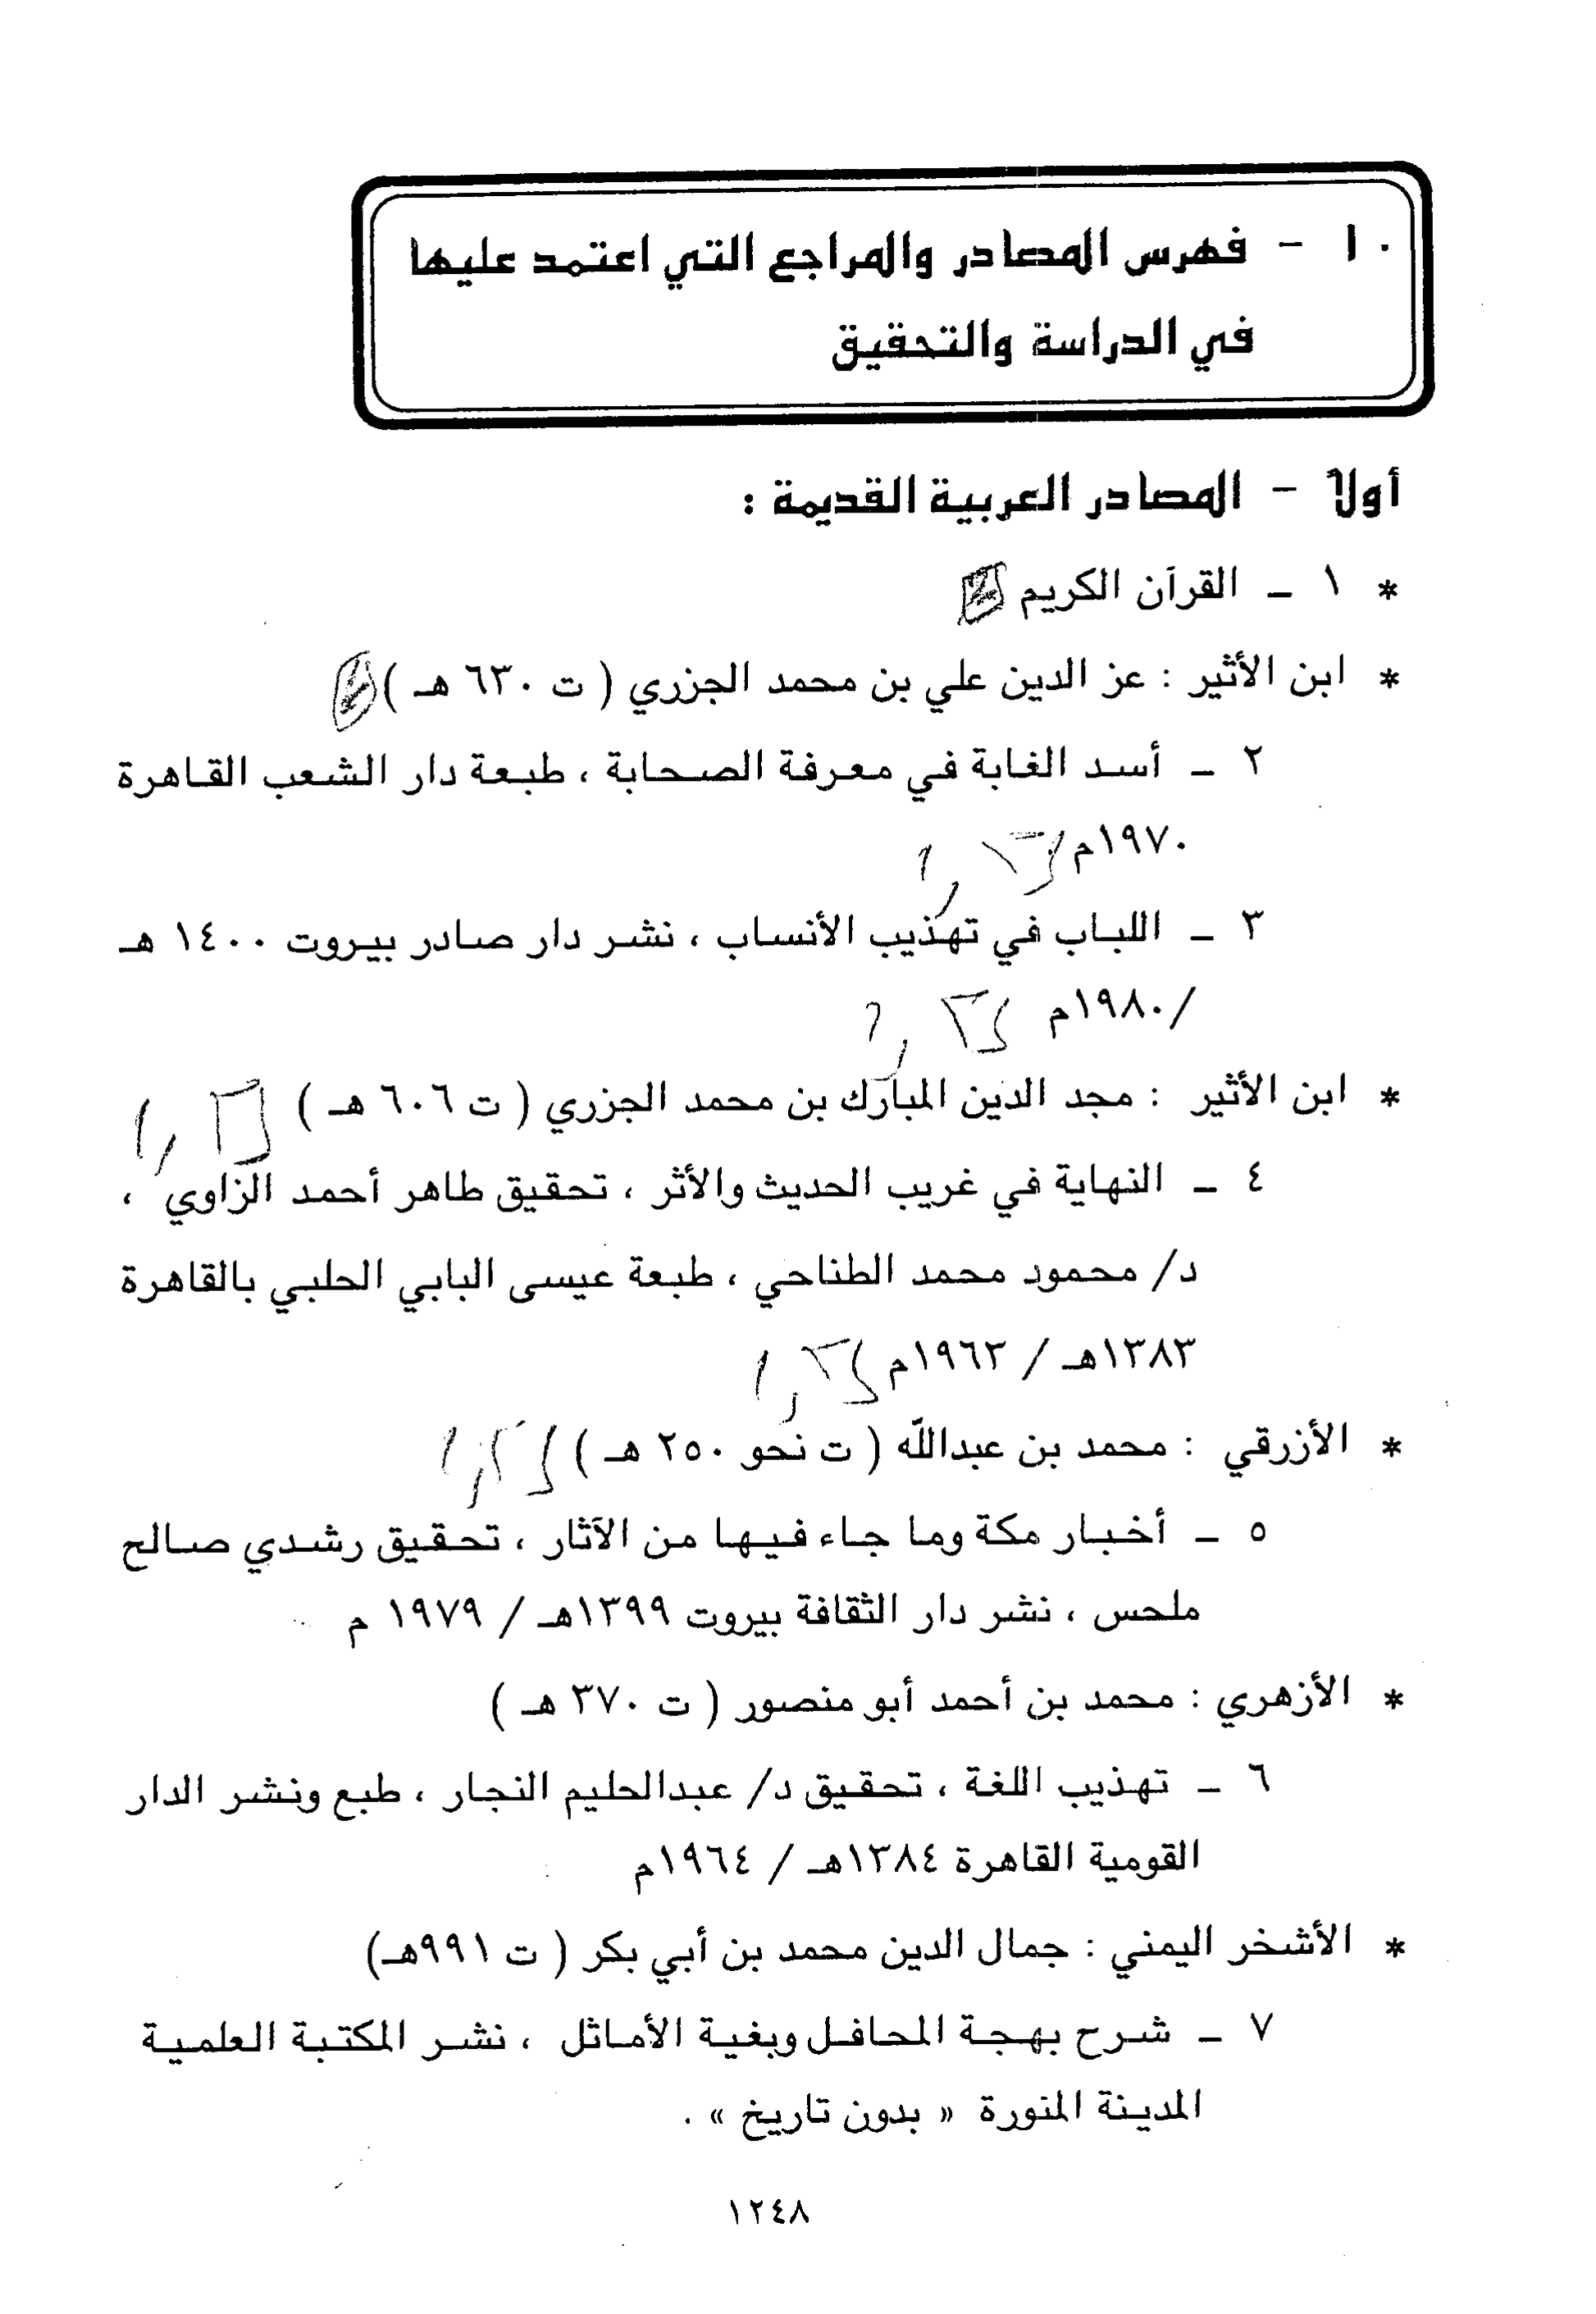 ١٠ - فهرس المصادر والمراجع التي اعتمد عليها
في الدراسة والتحقيق
أولاً - المصادر العربية القديمة :
* ١ - القرآن الكريم
* ابن الأثير : عز الدين علي بن محمد الجزري ( ت ٦٣٠ هـ )
٢ - أسد الغابة في معرفة الصحابة ، طبعة دار الشعب القاهرة
١٩٧٠م
٣ - اللباب في تهذيب الأنساب ، نشر دار صادر بيروت ١٤٠٠ هـ
/١٩٨٠م
* ابن الأثير : مجد الدين المبارك بن محمد الجزري ( ت ٦٠٦ هـ )
٤ - النهاية في غريب الحديث والأثر ، تحقيق طاهر أحمد الزاوي ،
د/ محمود محمد الطناحي ، طبعة عيسى البابي الحلبي بالقاهرة
١٣٨٣هـ / ١٩٦٣م
* الأزرقي : محمد بن عبدالله ( ت نحو ٢٥٠ هـ )
٥ - أخبار مكة وما جاء فيها من الآثار ، تحقيق رشدي صالح
ملحس ، نشر دار الثقافة بيروت ١٣٩٩هـ / ١٩٧٩ م
* الأزهري : محمد بن أحمد أبو منصور ( ت ٣٧٠ هـ )
٦ - تهذيب اللغة ، تحقيق د/ عبدالحليم النجار ، طبع ونشر الدار
القومية القاهرة ١٣٨٤هـ / ١٩٦٤م
* الأشخر اليمني : جمال الدين محمد بن أبي بكر ( ت ٩٩١هـ)
٧ - شرح بهجة المحافل وبغية الأماثل ، نشر المكتبة العلمية
المدينة المنورة « بدون تاريخ » .
١٢٤٨